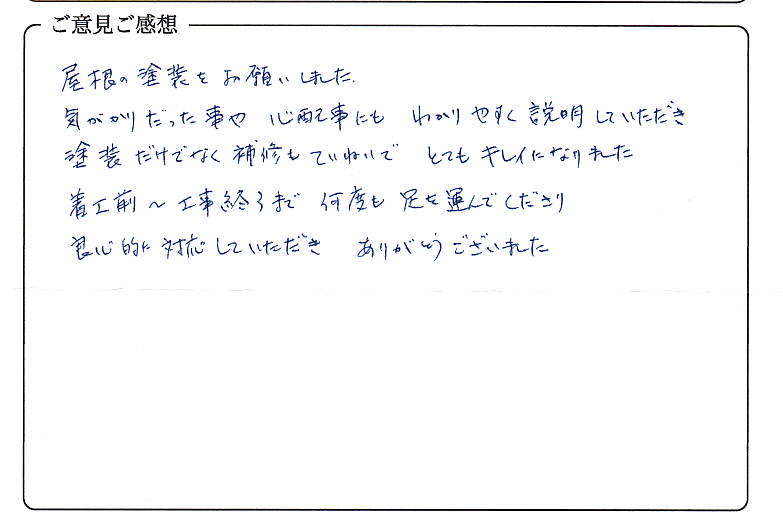 ご意見ご感想
屋根の塗装をお願いしました.
気がかりだった事や 心配事にも わかりやすく説明していただき
塗装だけでなく補修もていねいで とてもキレイになりました
着工前～工事終了まで 何度も足を運んでくださり
良心的に対応していただき ありがとうございました